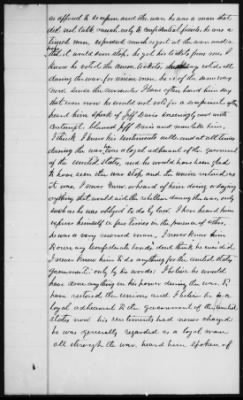 as affored to reopen and the war he was a man that
did not talk much, only to confidential friends. he was a
Union man, expressed much regret at the war and
that it would soon stop. he got his tickets from me. I
know he voted the union tickets, all
during the war for union men. he is of the same way
now since the surrender I have often heard him say
that even now he would not vote for a
heard him speak of Jeff Davis disparagingly and with
contempt. blamed Jeff Davis and
I think I know his sentiments well and at all times
during the war, was a loyal adherent of the government
of the united states, and he would have been glad
to have seen the war stop and the union restored as
it was. I never knew or heard of him doing or saying
anything that would aid the rebellion during the war, only
such as he was obliged to do by law. I have heard him
express himself in free in the presence of others,
he was a very man. I never knew him
to own any Confederate bonds don't think he ever did.
I never knew him to do anything for the united states
government only by his words. I believe he would
have done anything in his power during the war to
have restored the union and I believe he is a
loyal adherent to the government of the united
states now his sentiments had never changed
he was generally regarded as a loyal man
all through the war. heard him spoken of